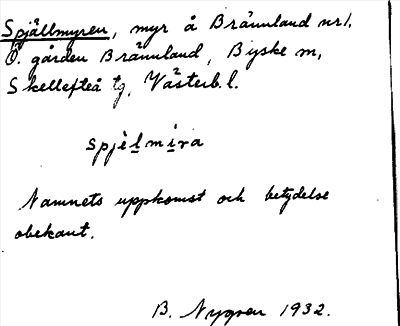 Spjällmyren, myr å Brännland nr 1.
Ö. gården Brännland, Byske sn,
Skellefteå tg, Västerb. l.
spjèlmira
Namnets uppkomst och betydelse
obekant.
B. Nygren 1932.